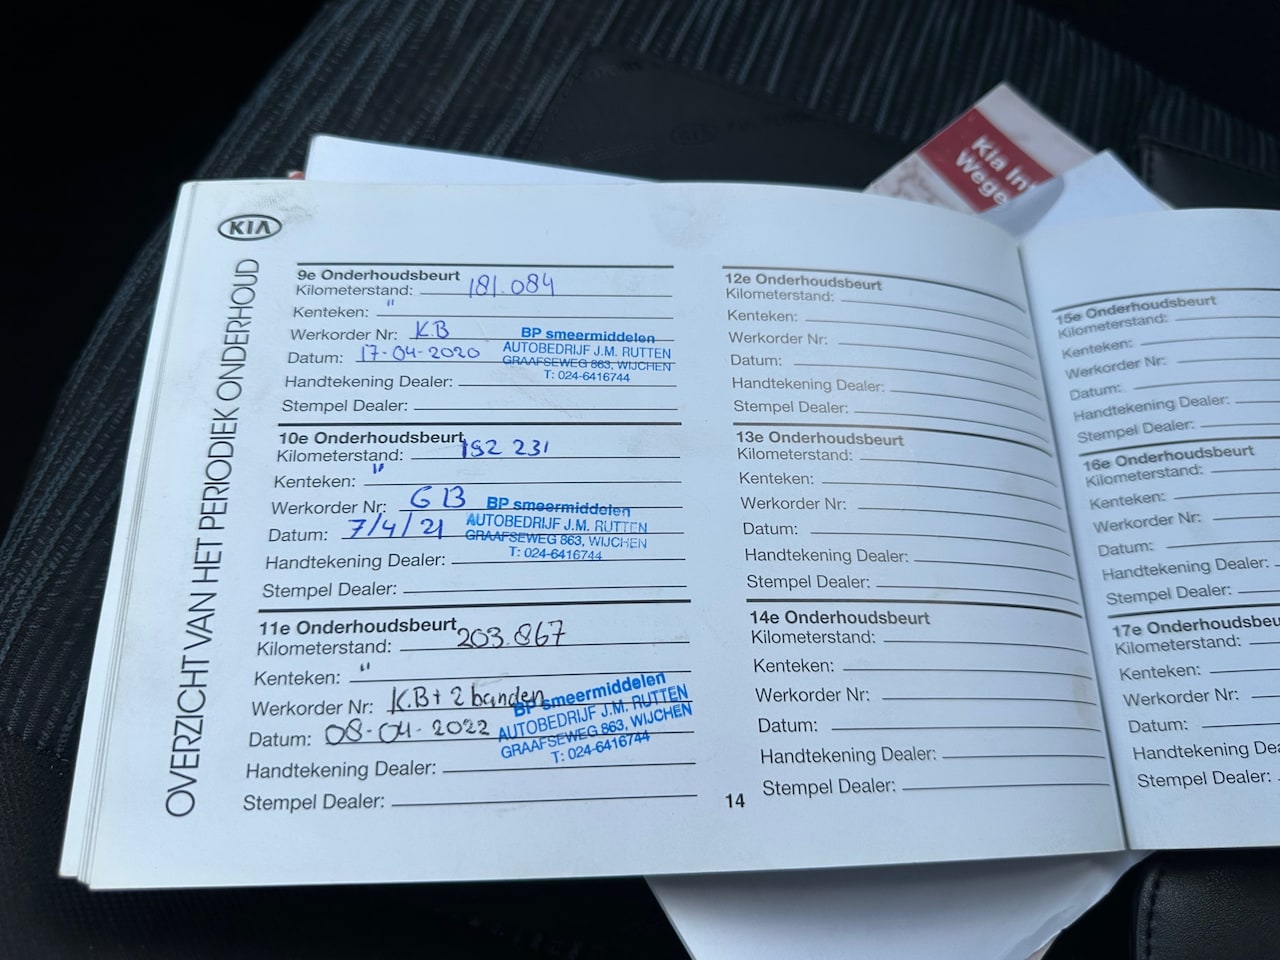 KIA
OVERZICHT VAN HET PERIODIEK ONDERHOUD
9e Onderhoudsbeurt
Kilometerstand: 181.084
Kenteken: "
Werkorder Nr: KB
Datum: 17-04-2020
BP smeermiddelen
AUTOBEDRIJF J.M. RUTTEN
GRAAFSEWEG 863, WIJCHEN
T: 024-6416744
Handtekening Dealer:
Stempel Dealer:
10e Onderhoudsbeurt
Kilometerstand: 192 231
Kenteken: "
Werkorder Nr: GB
Datum: 7/4/21
BP smeermiddelen
AUTOBEDRIJF J.M. RUTTEN
GRAAFSEWEG 863, WIJCHEN
T: 024-6416744
Handtekening Dealer:
Stempel Dealer:
11e Onderhoudsbeurt
Kilometerstand: 203.867
Kenteken: "
Werkorder Nr: K.B + 2 banden
Datum: 08-04-2022
BP smeermiddelen
AUTOBEDRIJF J.M. RUTTEN
GRAAFSEWEG 863, WIJCHEN
T: 024-6416744
Handtekening Dealer:
Stempel Dealer:
12e Onderhoudsbeurt
Kilometerstand:
Kenteken:
Werkorder Nr:
Datum:
Handtekening Dealer:
Stempel Dealer:
13e Onderhoudsbeurt
Kilometerstand:
Kenteken:
Werkorder Nr:
Datum:
Handtekening Dealer:
Stempel Dealer:
14e Onderhoudsbeurt
Kilometerstand:
Kenteken:
Werkorder Nr:
Datum:
Handtekening Dealer:
Stempel Dealer:
14
15e Onderhoudsbeurt
Kilometerstand:
Kenteken:
Werkorder Nr:
Datum:
Handtekening Dealer:
Stempel Dealer:
16e Onderhoudsbeurt
Kilometerstand:
Kenteken:
Werkorder Nr:
Datum:
Handtekening Dealer:
Stempel Dealer:
17e Onderhoudsbeu
Kilometerstand:
Kenteken:
Werkorder Nr:
Datum:
Handtekening Dea
Stempel Dealer:
Kia In
Wege
KIA